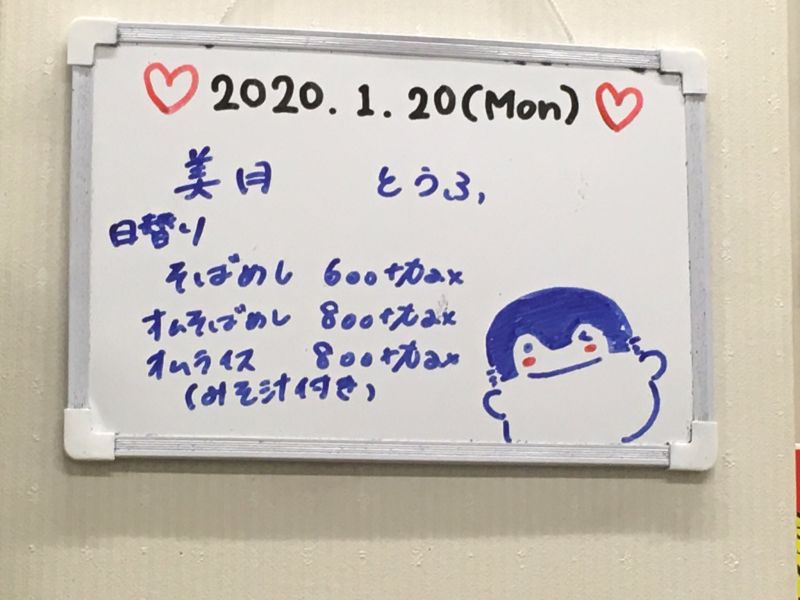 2020.1.20(Mon)
美月 とうふ,
日替り
そばめし 600+tax
オムそばめし 800+tax
オムライス 800+tax
(みそ汁付き)